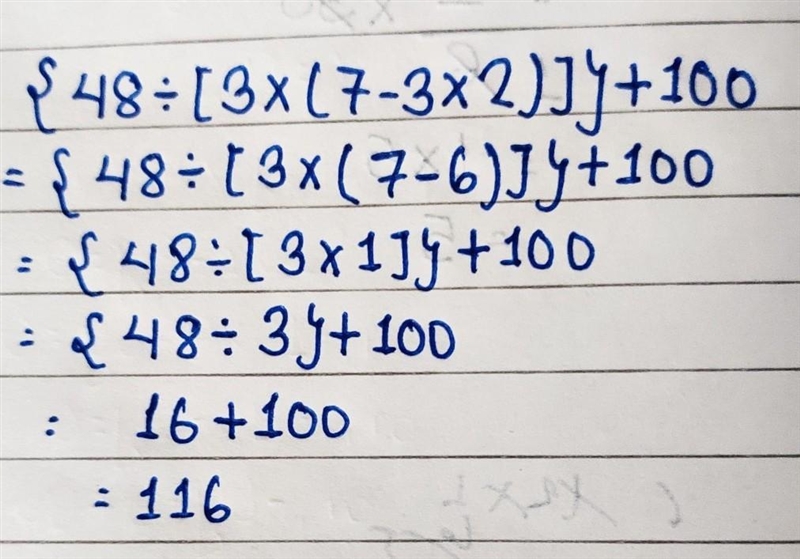 {48÷[3×(7-3×2)]}+100
= {48÷[3×(7-6)]}+100
= {48÷[3×1]}+100
= {48÷3}+100
= 16+100
= 116